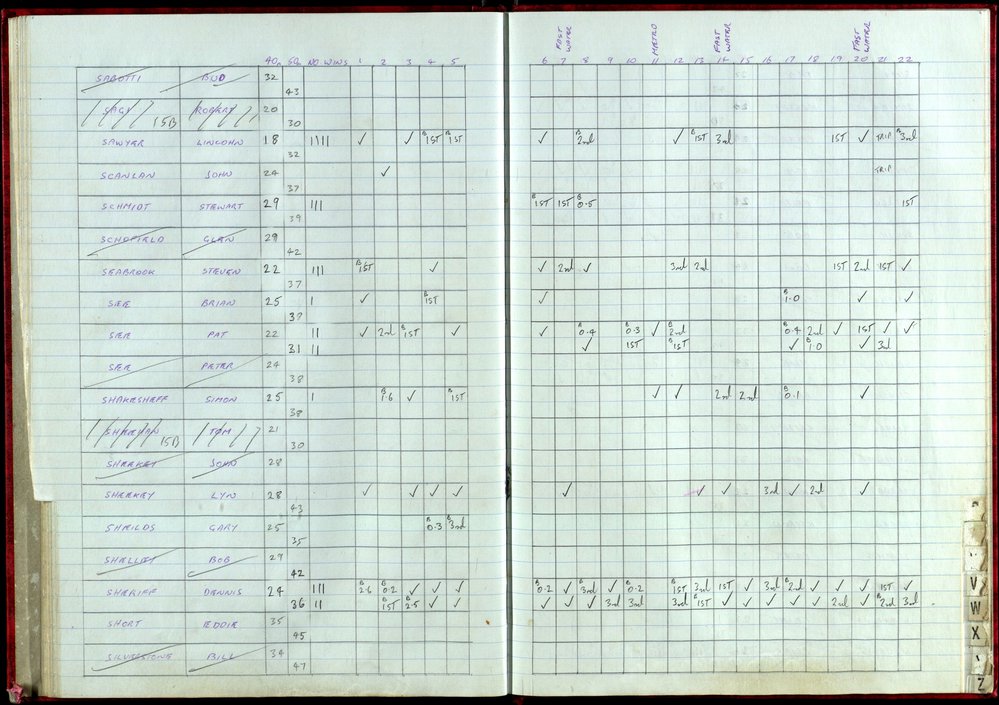 FAST WATER METRO FAST WATER FAST WATER
40m 50m NO WINS 1 2 3 4 5 6 7 8 9 10 11 12 13 14 15 16 17 18 19 20 21 22
SABOTTI BUD 32
43
SAGE ROBERT 20
15B 30
SAWYER LINCOHN 18 IIIII ✓ ✓ B 1ST B 1ST ✓ B 2nd ✓ B 1ST 3rd 1ST ✓ TRIP B 3rd
32
SCANLAN JOHN 24 ✓ TRIP
37
SCHMIDT STEWART 29 III B 1ST 1ST B 0.5 1ST
39
SCHOFIELD GLEN 29
42
SEABROOK STEVEN 22 III B 1ST ✓ ✓ 2nd ✓ 3rd 2nd 1ST 2nd 1ST ✓
37
SEE BRIAN 25 I ✓ B 1ST ✓ B 1.0 ✓ ✓
37
SEE PAT 22 II ✓ 2nd B 1ST ✓ ✓ B 0.4 B 0.3 ✓ B 2nd B 0.4 2nd ✓ 1ST ✓ ✓
31 II ✓ 1ST B 1ST ✓ B 1.0 ✓ 3rd
SEE PETER 24
38
SHAKESHEFF SIMON 25 I B 1.6 ✓ B 1ST ✓ ✓ 2nd 2nd B 0.1 ✓
38
SHEEHAN TOM 21
15B 30
SHEEKEY JOHN 28
SHEEKEY LYN 28 ✓ ✓ ✓ ✓ ✓ ✓ ✓ 3rd ✓ 2nd ✓
43
SHEILDS GARY 25 B 0.3 B 3rd
35
SHELLEY BOB 29
42
SHERIFF DENNIS 24 III B 2.6 B 0.2 ✓ ✓ ✓ B 0.2 ✓ B 3rd ✓ B 0.2 B 1ST 3rd 1ST ✓ 3rd B 2nd ✓ ✓ ✓ 1ST ✓
36 II B 1ST B 2.5 ✓ ✓ ✓ ✓ ✓ 3rd 3rd 3rd B 1ST ✓ ✓ ✓ ✓ ✓ 2nd ✓ B 2nd 3rd
SHORT EDDIE 35
45
SILVESTONE BILL 34
47
V
W
X
Z